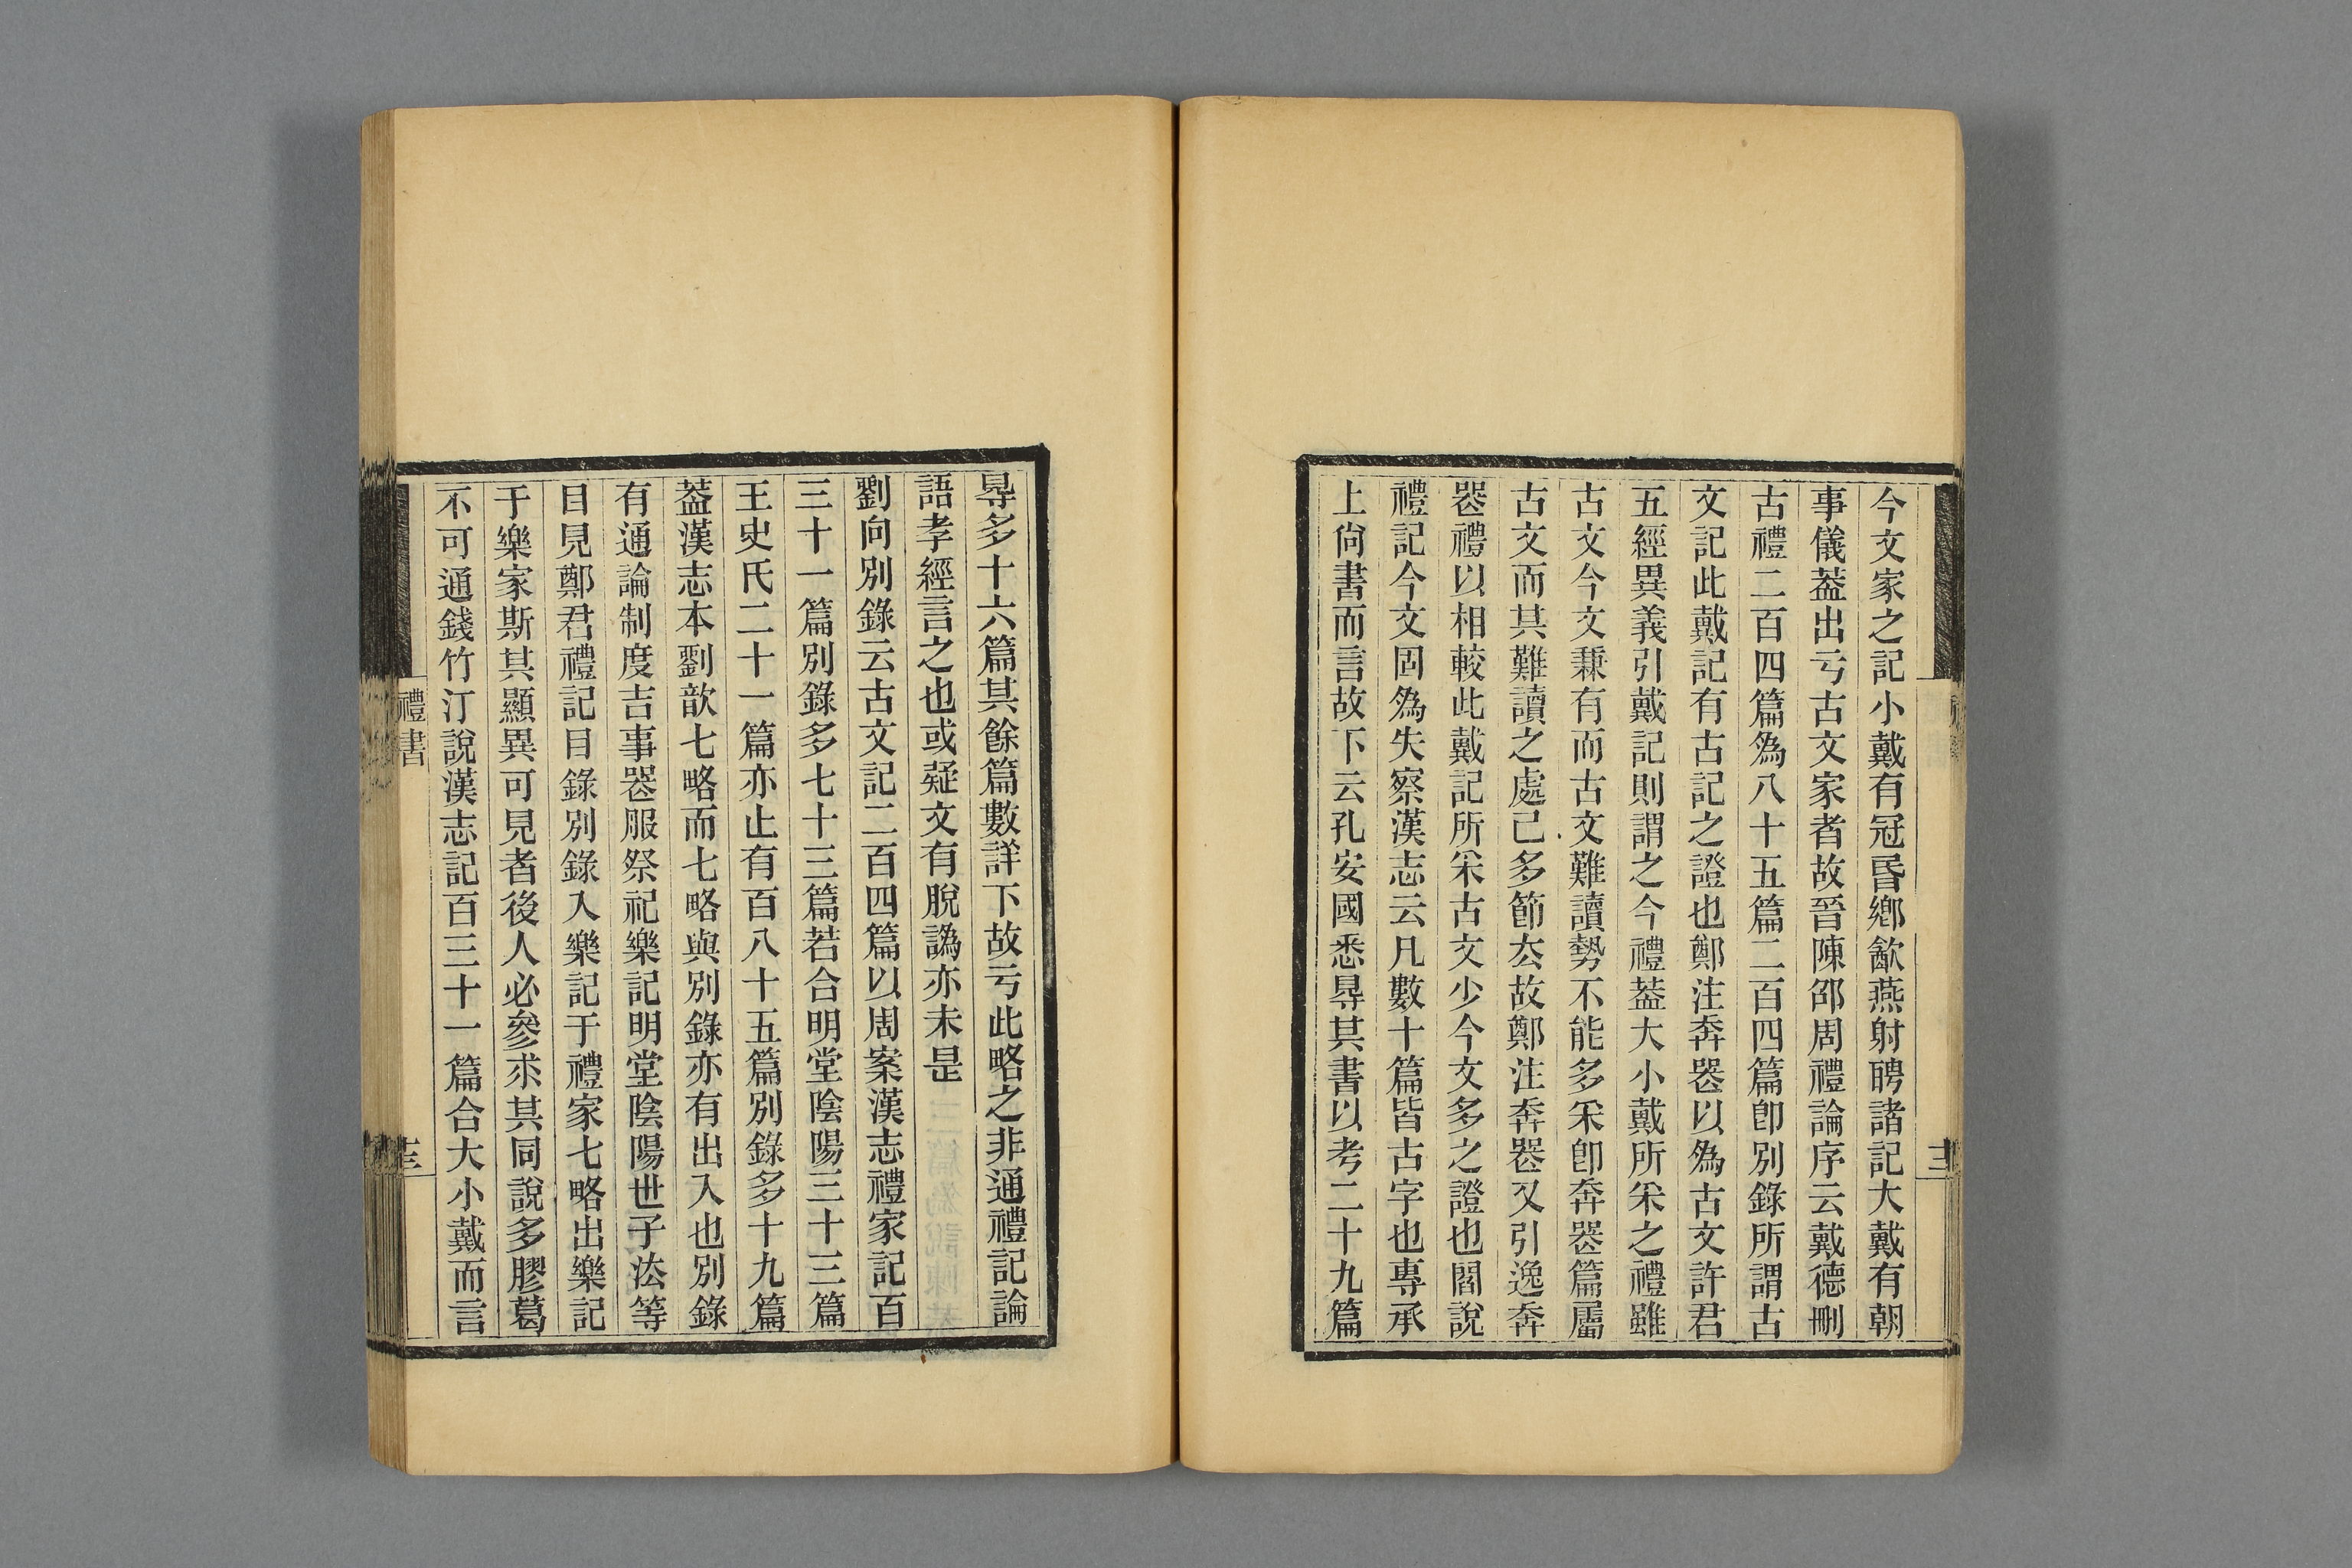 今文家之記小戴有冠昏鄉飮燕射聘諸記大戴有朝
事儀葢出亏古文家者故晉陳邵周禮論序云戴德刪
古禮二百四篇爲八十五篇二百四篇卽別錄所謂古
文記此戴記有古記之證也鄭注奔喪以爲古文許君
五經異義引戴記則謂之今禮葢大小戴所采之禮雖
古文今文兼有而古文難讀勢不能多采卽奔喪篇屬
古文而其難讀之處已多節去故鄭注奔喪又引逸奔
喪禮以相較此戴記所采古文少今文多之證也閻說
禮記今文固爲失察漢志云凡數十篇皆古字也專承
上尙書而言故下云孔安國悉㝵其書以考二十九篇
㝵多十六篇其餘篇數詳下故亏此略之非通禮記論
語孝經言之也或疑文有脫譌亦未是
劉向別錄云古文記二百四篇以周案漢志禮家記百
三十一篇別錄多七十三篇若合明堂陰陽三十三篇
王史氏二十一篇亦止有百八十五篇別錄多十九篇
葢漢志本劉歆七略而七略與別錄亦有出入也別錄
有通論制度吉事喪服祭祀樂記明堂陰陽世子法等
目見鄭君禮記目錄別錄入樂記于禮家七略出樂記
于樂家斯其顯異可見者後人必參求其同說多膠葛
不可通錢竹汀說漢志記百三十一篇合大小戴而言
禮書
十三